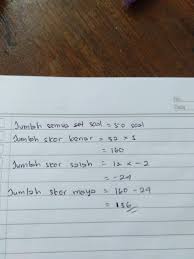 No.
Date
Jumlah semua set soal = 50 soal
Jumlah skor benar = 32 × 5
= 160
Jumlah skor salah = 12 × -2
= -24
Jumlah skor maya = 160 - 24
= 136